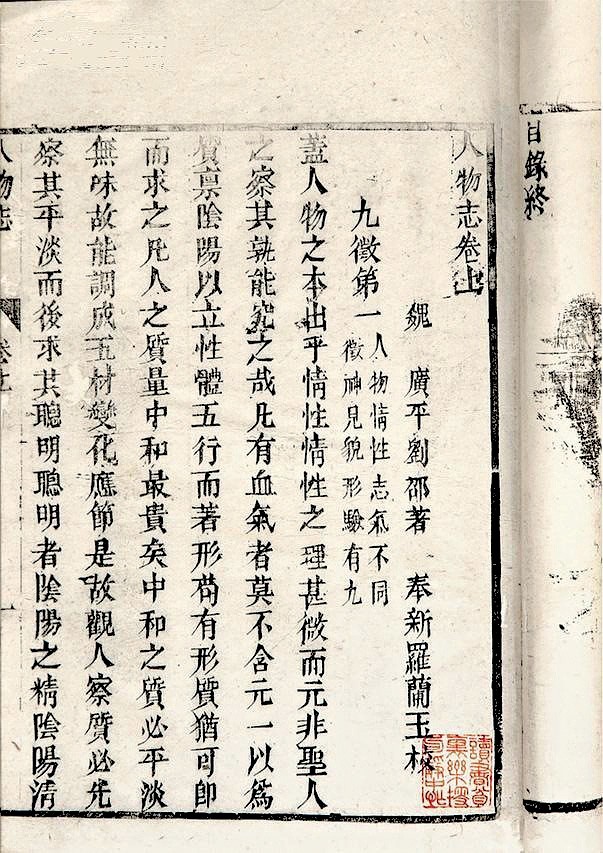 目錄終
人物志卷上
魏 廣平劉邵著 奉新羅蘭玉校
九徵第一 人物情性志氣不同
徵神見貌形驗有九
蓋人物之本出乎情性情性之理甚微而元非聖人
之察其孰能究之哉凡有血氣者莫不含元一以爲
質禀陰陽以立性體五行而著形苟有形質猶可即
而求之凡人之質量中和最貴矣中和之質必平淡
無味故能調成五材變化應節是故觀人察質必先
察其平淡而後求其聰明聰明者陰陽之精陰陽清
人物志 卷上